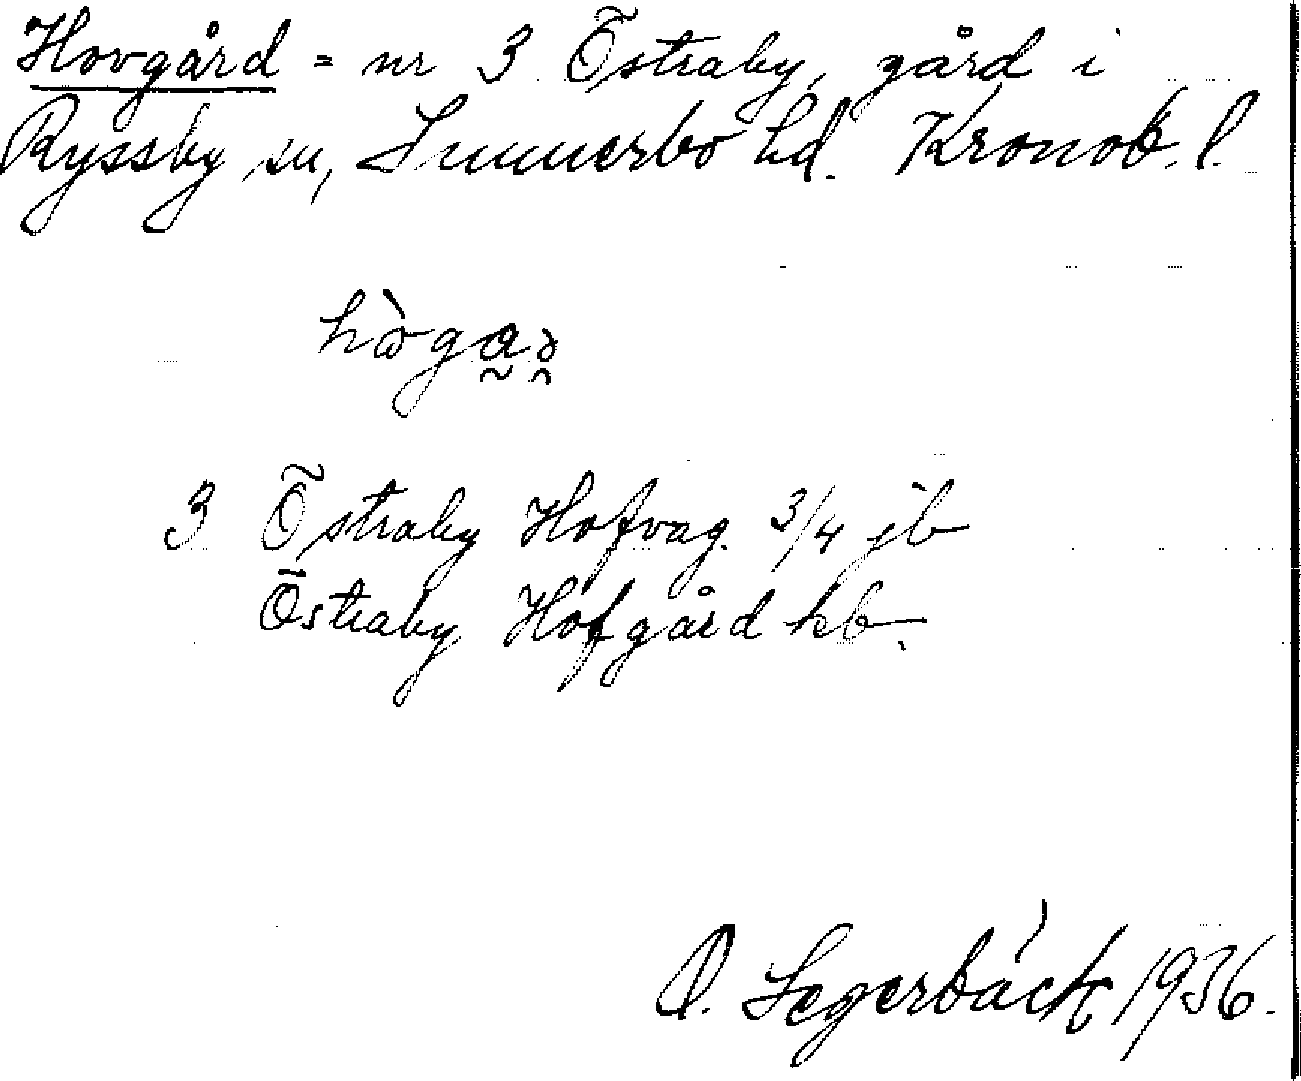 Hovgård = nr 3 Östraby, gård i
Ryssby sn, Sunnerbo hd. Kronob. l.
3 Östraby Hofvag. 3/4 jb
Östraby Hofgård hb.
O. Segerbäck 1936.